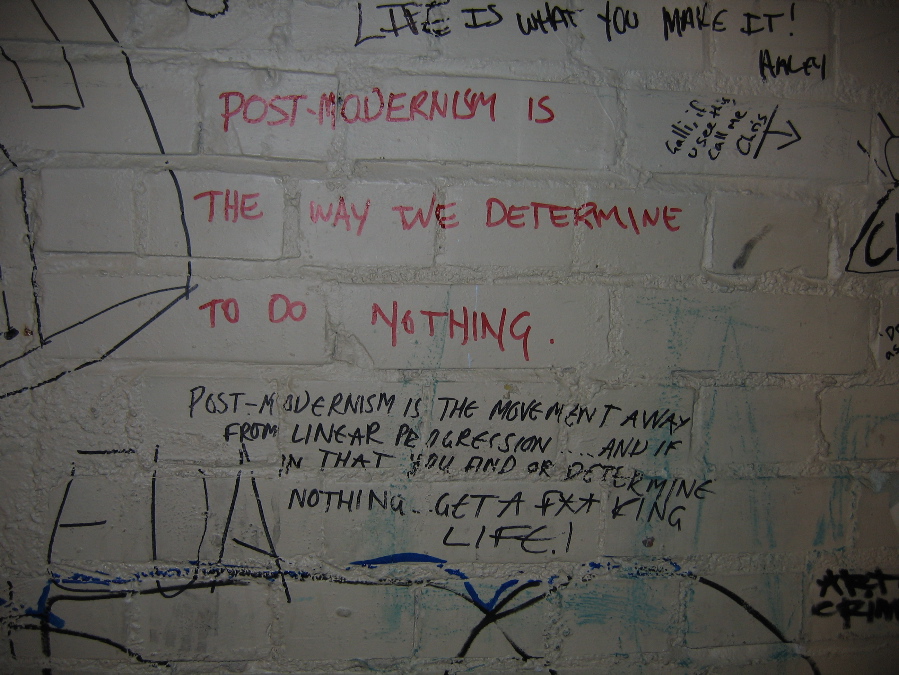 LIFE IS WHAT YOU MAKE IT!
HALEY
POST-MODERNISM IS
Galli, if
u see this,
call me
Chris
THE WAY WE DETERMINE
TO DO NOTHING.
POST-MODERNISM IS THE MOVEMENT AWAY
FROM LINEAR PROGRESSION....AND IF
IN THAT YOU FIND OR DETERMINE
NOTHING...GET A F** KING
LIFE!